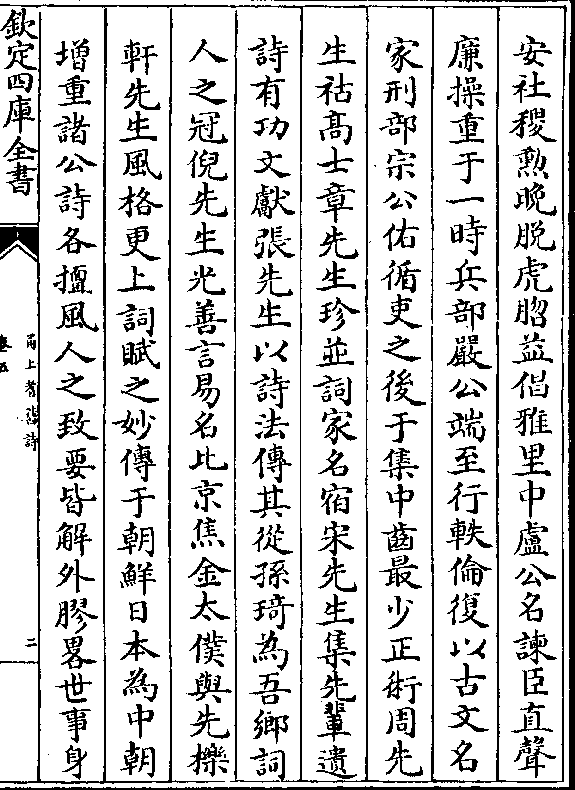 安社稷勲晚脫虎脗益倡雅里中盧公名諫臣直聲
廉操重于一時兵部嚴公端至行軼倫復以古文名
家刑部宗公佑循吏之後于集中齒最少正術周先
生祜髙士章先生珍並詞家名宿宋先生集先輩遺
詩有功文獻張先生以詩法傳其從孫琦為吾鄉詞
人之冠倪先生光善言易名比京焦金太僕與先櫟
軒先生風格更上詞賦之妙傳于朝鮮日本為中朝
増重諸公詩各擅風人之致要皆解外膠畧世事身
欽定四庫全書
甬上耆舊詩
卷五
二